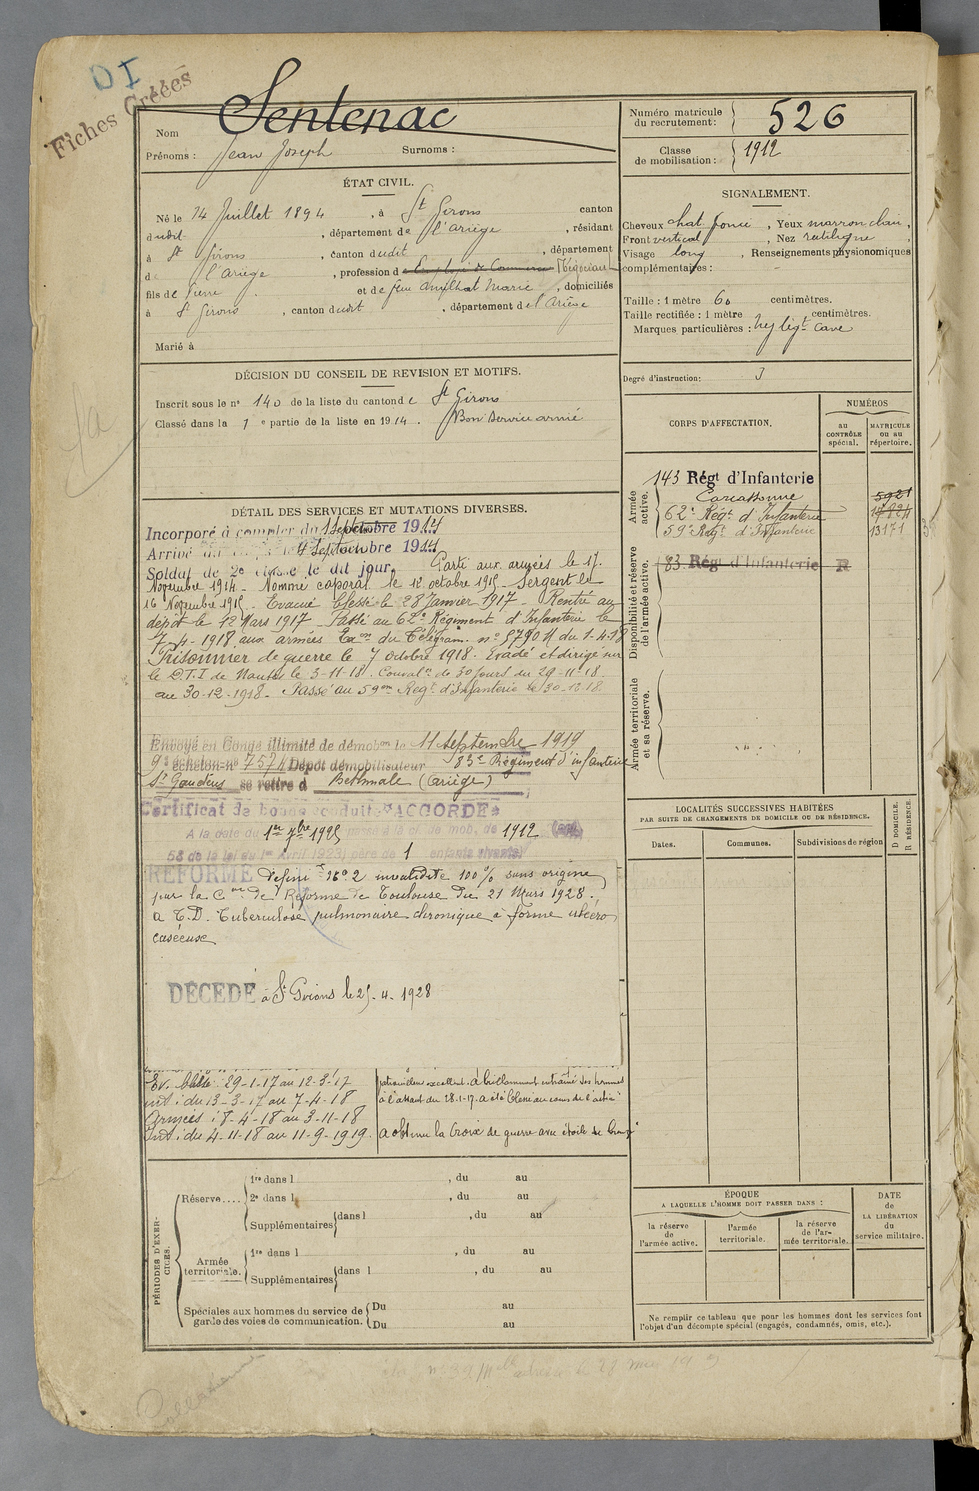 DI
Fiches Créées
Nom Sentenac
Prénoms : Jean Joseph Surnoms :
ÉTAT CIVIL.
Né le 14 Juillet 1894, à St Girons canton
dudit, département de l'Ariège, résidant
à St Girons, canton dudit, département
de l'Ariège, profession d Employé de Commerce Négociant
fils de Pierre et de feu Marie, domiciliés
à St Girons, canton dudit, département de l'Ariège
Marié à
DÉCISION DU CONSEIL DE REVISION ET MOTIFS.
Inscrit sous le n° 140 de la liste du canton de St Girons
Classé dans la 1 e partie de la liste en 1914. Bon service armé
DÉTAIL DES SERVICES ET MUTATIONS DIVERSES.
Incorporé à compter du 1 Septembre 1914
Arrivé au corps le 4 Septembre 1914
Soldat de 2e classe le dit jour. Parti aux armées le 17
Novembre 1914 - Nommé caporal le 12 octobre 1915 - Sergent le
16 Novembre 1915. Evacué blessé le 28 Janvier 1917 - Rentré au
dépôt le 12 Mars 1917 - Passé au 62e Régiment d'Infanterie le
7-4-1918 aux armées Exon du Télégram. n° 8790 M du 1-4-18
Prisonnier de guerre le 7 octobre 1918. Evadé et dirigé sur
le D.T.I de Nantes le 3-11-18. Convalce de 30 jours du 29-11-18
au 30-12-1918 - Passé au 59me Regt d'Infanterie le 30-12-18.
Envoyé en Congé illimité de démobon le 11 septembre 1919
9e échelon-no 7574 Dépôt démobilisateur 83e Régiment d'infanterie
St Gaudens se retire à Bethmale (Ariège)
Certificat de bonne conduite "ACCORDÉ"
A la date du 1er 7bre 1925 passé à la cl. de mob. de 1912 (art.
58 de la loi du 1er Avril 1923) père de 1 enfants vivants)
RÉFORMÉ défini tf no 2 invalidité 100% sans origine
par la Con de Réforme de Toulouse du 21 Mars 1928.
a T.D. Tuberculose pulmonaire chronique à forme ulcéro
caséeuse
DÉCÉDÉ à St Girons le 25-4-1928
Ev. blessé : 29-1-17 au 12-3-17
int : du 13-3-17 au 7-4-18
Armées : 8-4-18 au 3-11-18
Int : du 4-11-18 au 11-9-1919.
patrouilleur excellent. A brillamment entraîné ses hommes
à l'assaut du 28-1-17. a été blessé au cours de l'action
a obtenu la Croix de guerre avec étoile de bronze
PÉRIODES D'EXERCICES.
Réserve.... 1re dans l, du au
2e dans l, du au
Supplémentaires dans l, du au
Armée territoriale. 1re dans l, du au
Supplémentaires dans l, du au
Spéciales aux hommes du service de garde des voies de communication. Du au
Du au
Numéro matricule du recrutement : 526
Classe de mobilisation : 1912
SIGNALEMENT.
Cheveux chat foncé, Yeux marron clair,
Front vertical, Nez rectiligne,
Visage long, Renseignements physionomiques
complémentaires :
Taille : 1 mètre 60 centimètres.
Taille rectifiée : 1 mètre centimètres.
Marques particulières : nez légt cave
Degré d'instruction : 3
CORPS D'AFFECTATION.
NUMÉROS
au CONTRÔLE spécial.
MATRICULE ou au répertoire.
Armée active.
143 Régt d'Infanterie
Carcassonne 5921
62e Régt d'Infanterie
59e Regt d'Infanterie 13171
Disponibilité et réserve de l'armée active.
83 Régt d'Infanterie R
Armée territoriale et sa réserve.
LOCALITÉS SUCCESSIVES HABITÉES
PAR SUITE DE CHANGEMENTS DE DOMICILE OU DE RÉSIDENCE.
Dates. Communes. Subdivisions de région
D DOMICILE. R RÉSIDENCE.
ÉPOQUE
A LAQUELLE L'HOMME DOIT PASSER DANS :
la réserve de l'armée active.
l'armée territoriale.
la réserve de l'armée territoriale.
DATE de LA LIBÉRATION du service militaire.
Ne remplir ce tableau que pour les hommes dont les services font
l'objet d'un décompte spécial (engagés, condamnés, omis, etc.).